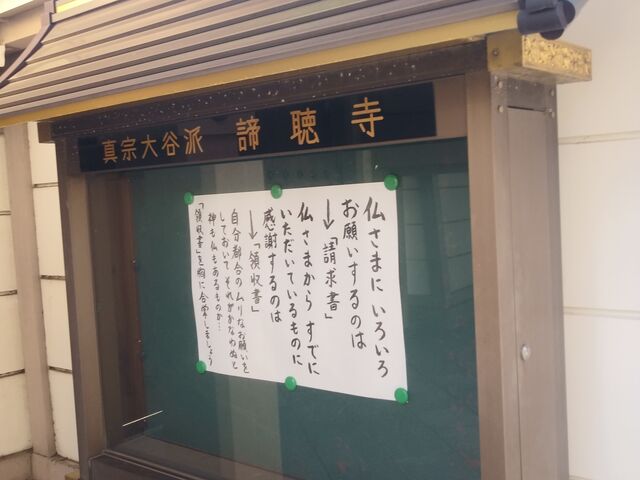 真宗大谷派 諦聴寺
仏さまに いろいろ
お願いするのは
→「請求書」
仏さまから すでに
いただいているものに
感謝するのは
→「領収書」
自分都合のムリなお願いを
しておいて それがかなわぬと
神も仏もあるものか…
「領収書」を胸に合掌しましょう